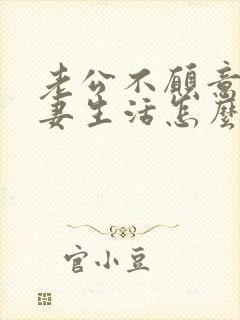 老公不愿意
妻生活怎麽
官小豆